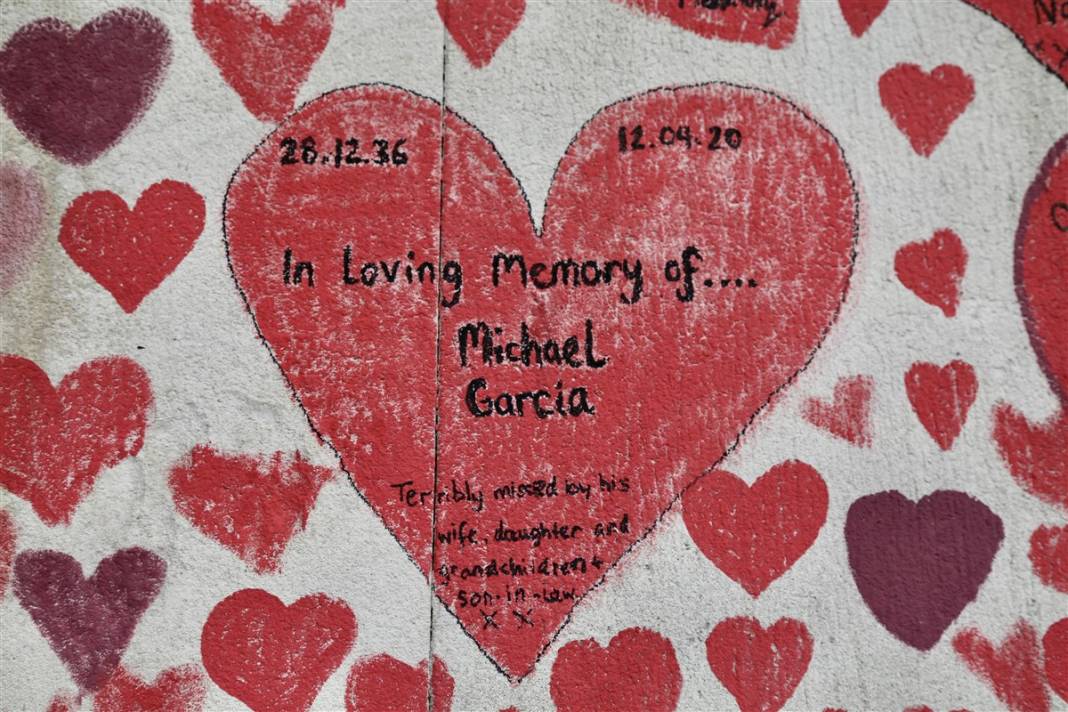 28.12.36
12.04.20
In Loving Memory of....
Michael
Garcia
Terribly missed by his
wife, daughter and
grandchildren +
son-in-law.
X X